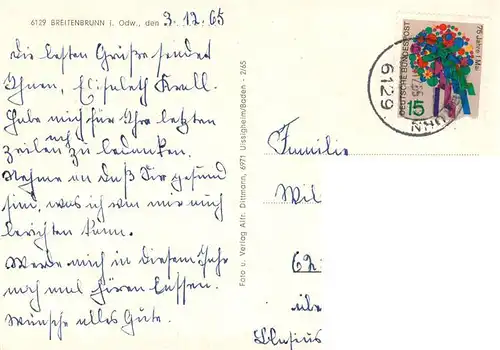 6129 BREITENBRUNN i. Odw., den 3.12.65
Die besten Grüße sendet
Ihnen, Elisabeth Krall.
Habe mich für Ihre letzten
Zeilen noch zu bedanken.
Nehme an daß Sie gesund
sind, was ich von mir auch
berichten kann.
Werde mich in diesem Jahr
noch mal hören lassen.
Wünsche alles Gute.
Foto u. Verlag Alfr. Dittmann, 6971 Uissigheim/Baden - 2/65
DEUTSCHE BUNDESPOST
75 Jahre 1. Mai
15
6129
Familie
Wil
62
übe